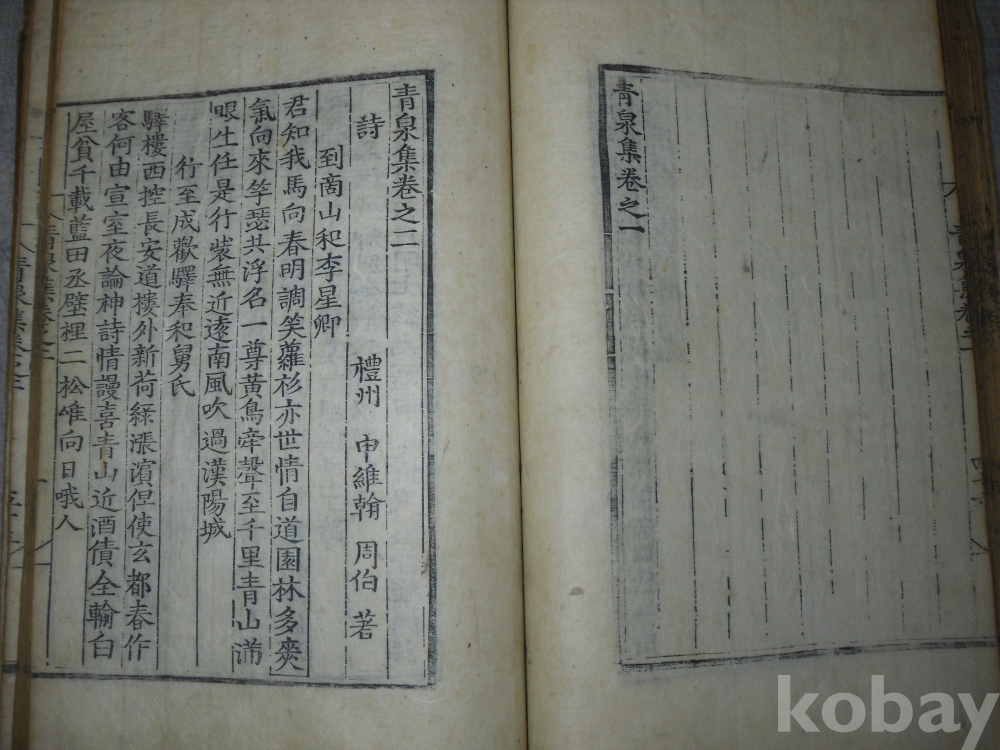 青泉集卷之一
青泉集卷之二
詩 禮州 申維翰 周伯 著
到商山和李星卿
君知我馬向春明調笑蘿杉亦世情自道園林多爽
氣向來竽瑟共浮名一尊黃鳥牽聲至千里青山滿
眼生任是行裝無近遠南風吹過漢陽城
行至成歡驛奉和舅氏
驛樓西控長安道樓外新荷綠漲濱但使玄都春作
客何由宣室夜論神詩情謾喜青山近酒債全輸白
屋貧千載藍田丞壁裡二松唯向日哦人
kobay